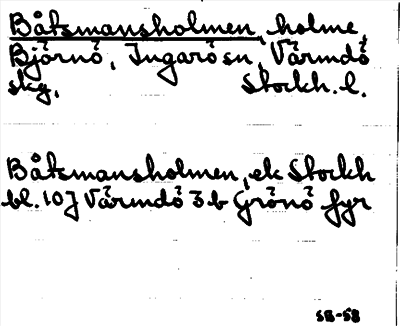 Båtsmansholmen, holme,
Björnö, Ingarö sn, Värmdö
skg, Stockh. l.
Båtsmansholmen, ek Stockh
bl. 10J Värmdö 3b Grönö fyr
SB-58